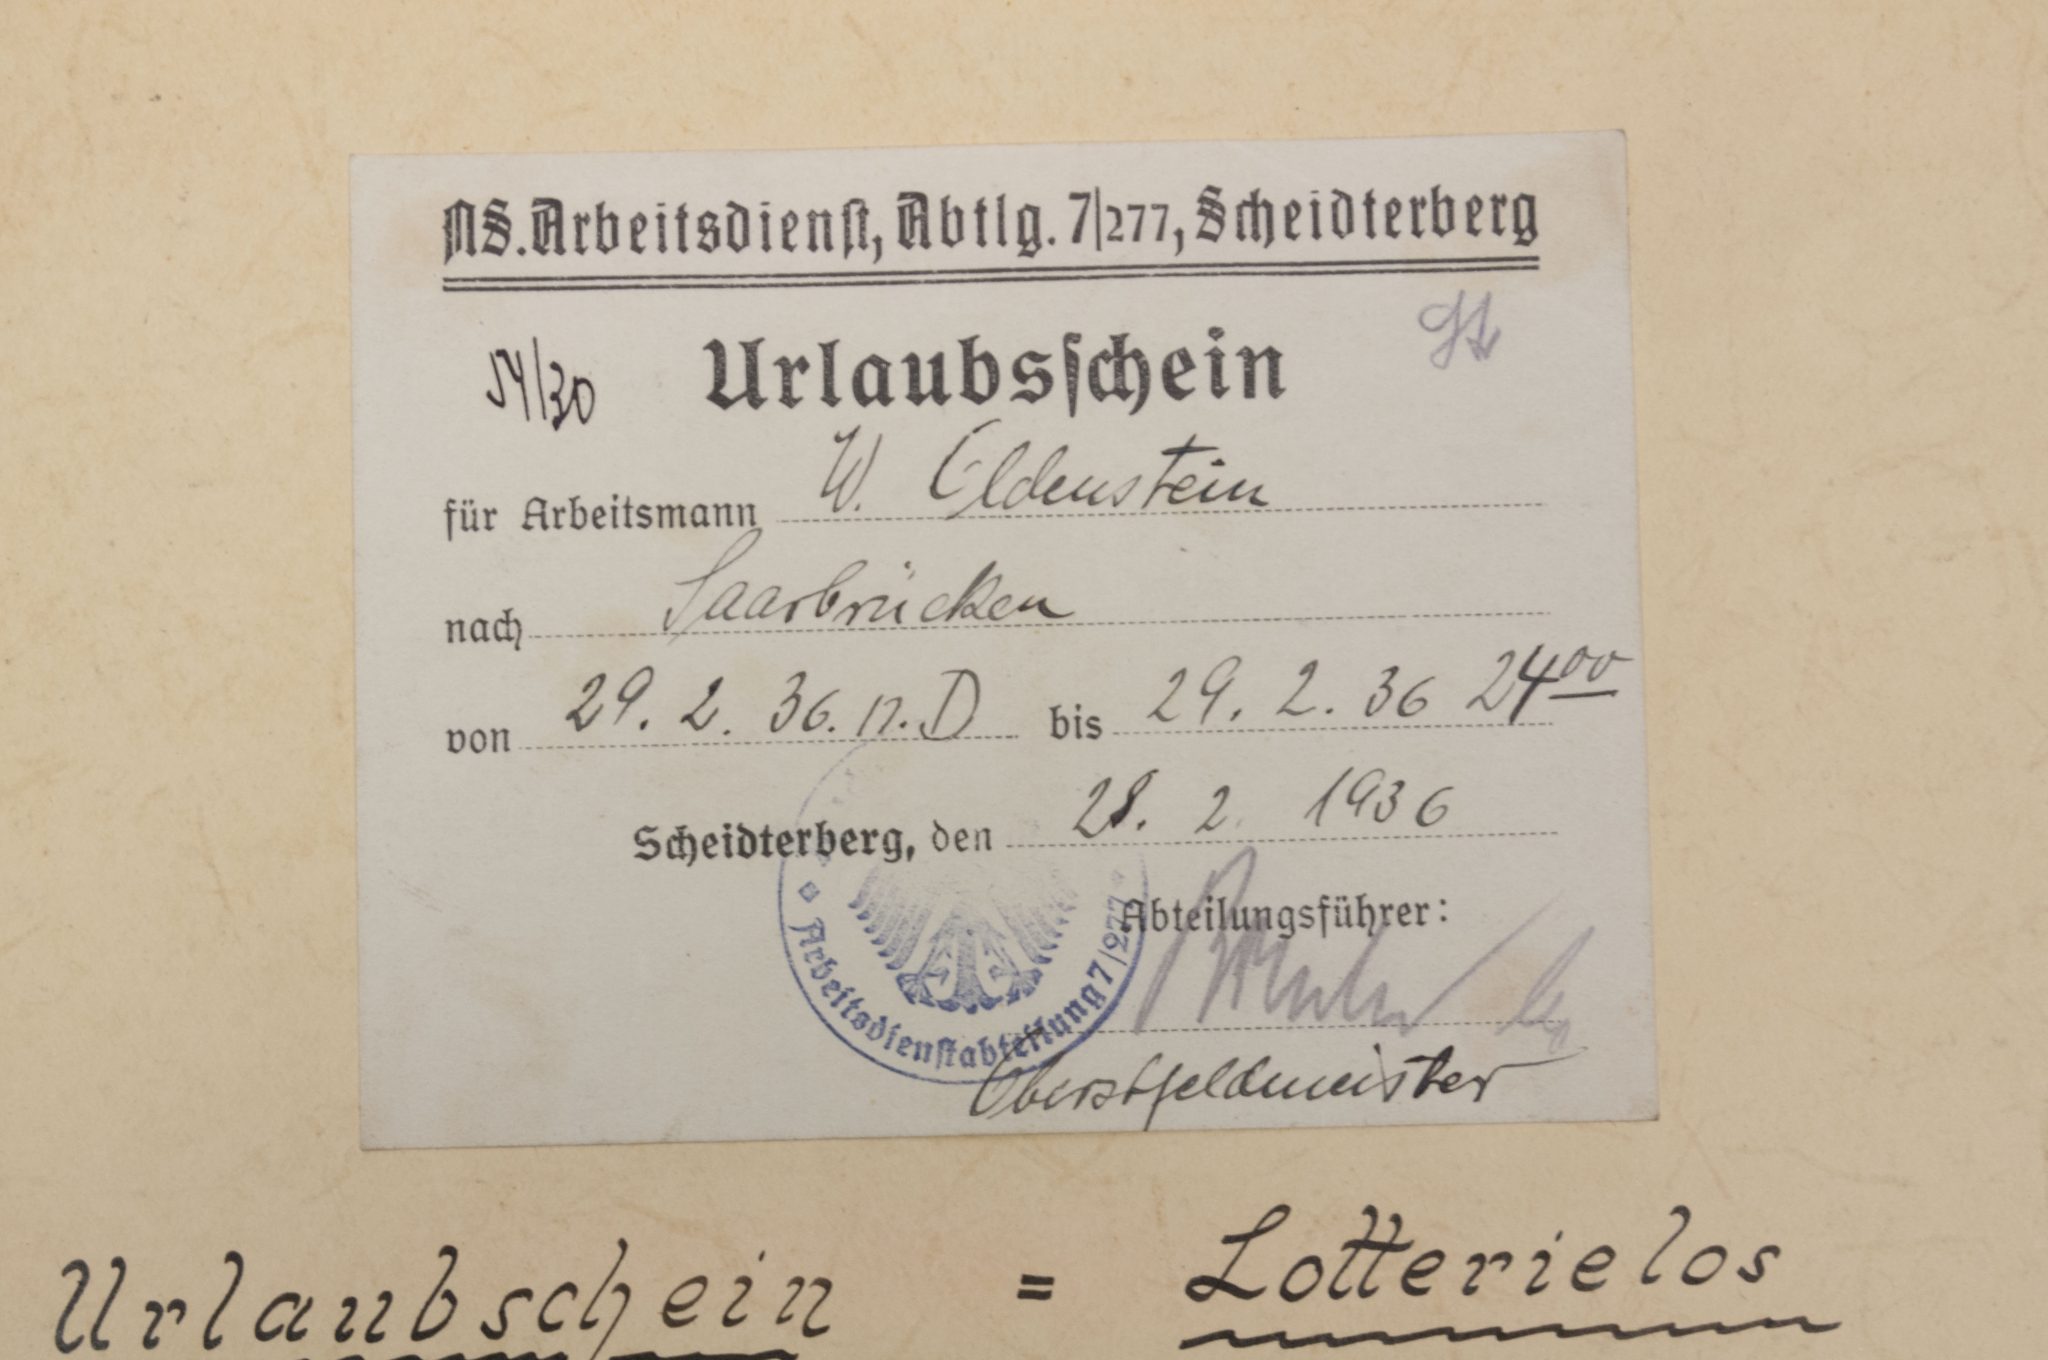 NS. Arbeitsdienst, Abtlg. 7/277, Scheidterberg
54/30
Urlaubsschein
für Arbeitsmann W. Eldenstein
nach Saarbrücken
von 29. 2. 36. n. D bis 29. 2. 36 24⁰⁰
Scheidterberg, den 28. 2. 1936
Abteilungsführer:
Arbeitsdienstabteilung 7/277
Oberstfeldmeister
Urlaubschein = Lotterielos